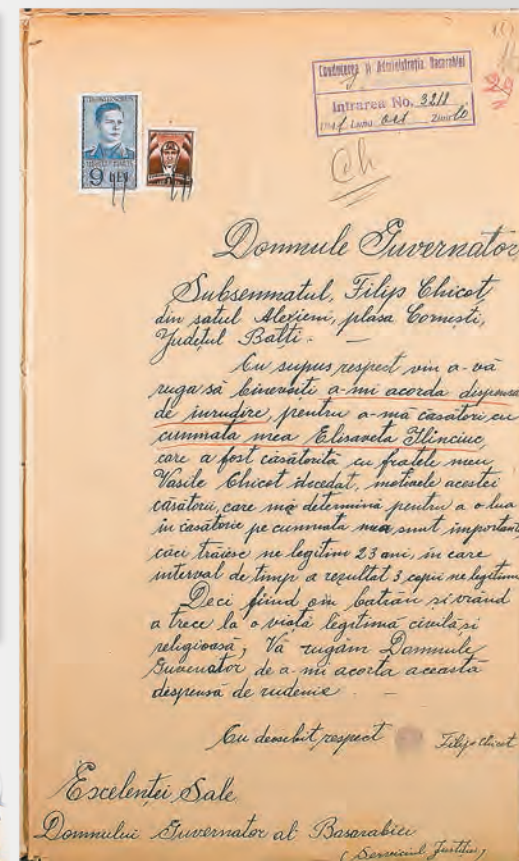 Conducerea și Administrația Basarabiei
Intrarea No. 3211
Luna Oct Ziua 10
29
Ch
9 LEI
Domnule Guvernator
Subsemnatul, Filip Chicot,
din satul Alexieni, plasa Cornești,
Județul Balti. —
Cu supus respect vin a-vă
ruga să binevoiti a-mi acorda dispensa
de inrudire, pentru a-mă căsători cu
cumnata mea Elisaveta Ilinciuc,
care a fost căsătorită cu fratele meu
Vasile Chicot decedat, motivele acestei
căsătorii, care mă determină pentru a o lua
in căsătorie pe cumnata mea sunt important
căci trăiesc ne legitim 23 ani, in care
interval de timp a rezultat 3 copii ne legitimi
Deci fiind om batrân si vrând
a trece la o viață legitimă civilă si
religioasă, Vă rugăm Domnule
Guvenator de a-mi acorta această
despensă de rudenie. —
Cu deosebit respect Filip Chicot
Excelenței Sale
Domnului Guvernator al Basarabiei
(Serviciul Justitiei)